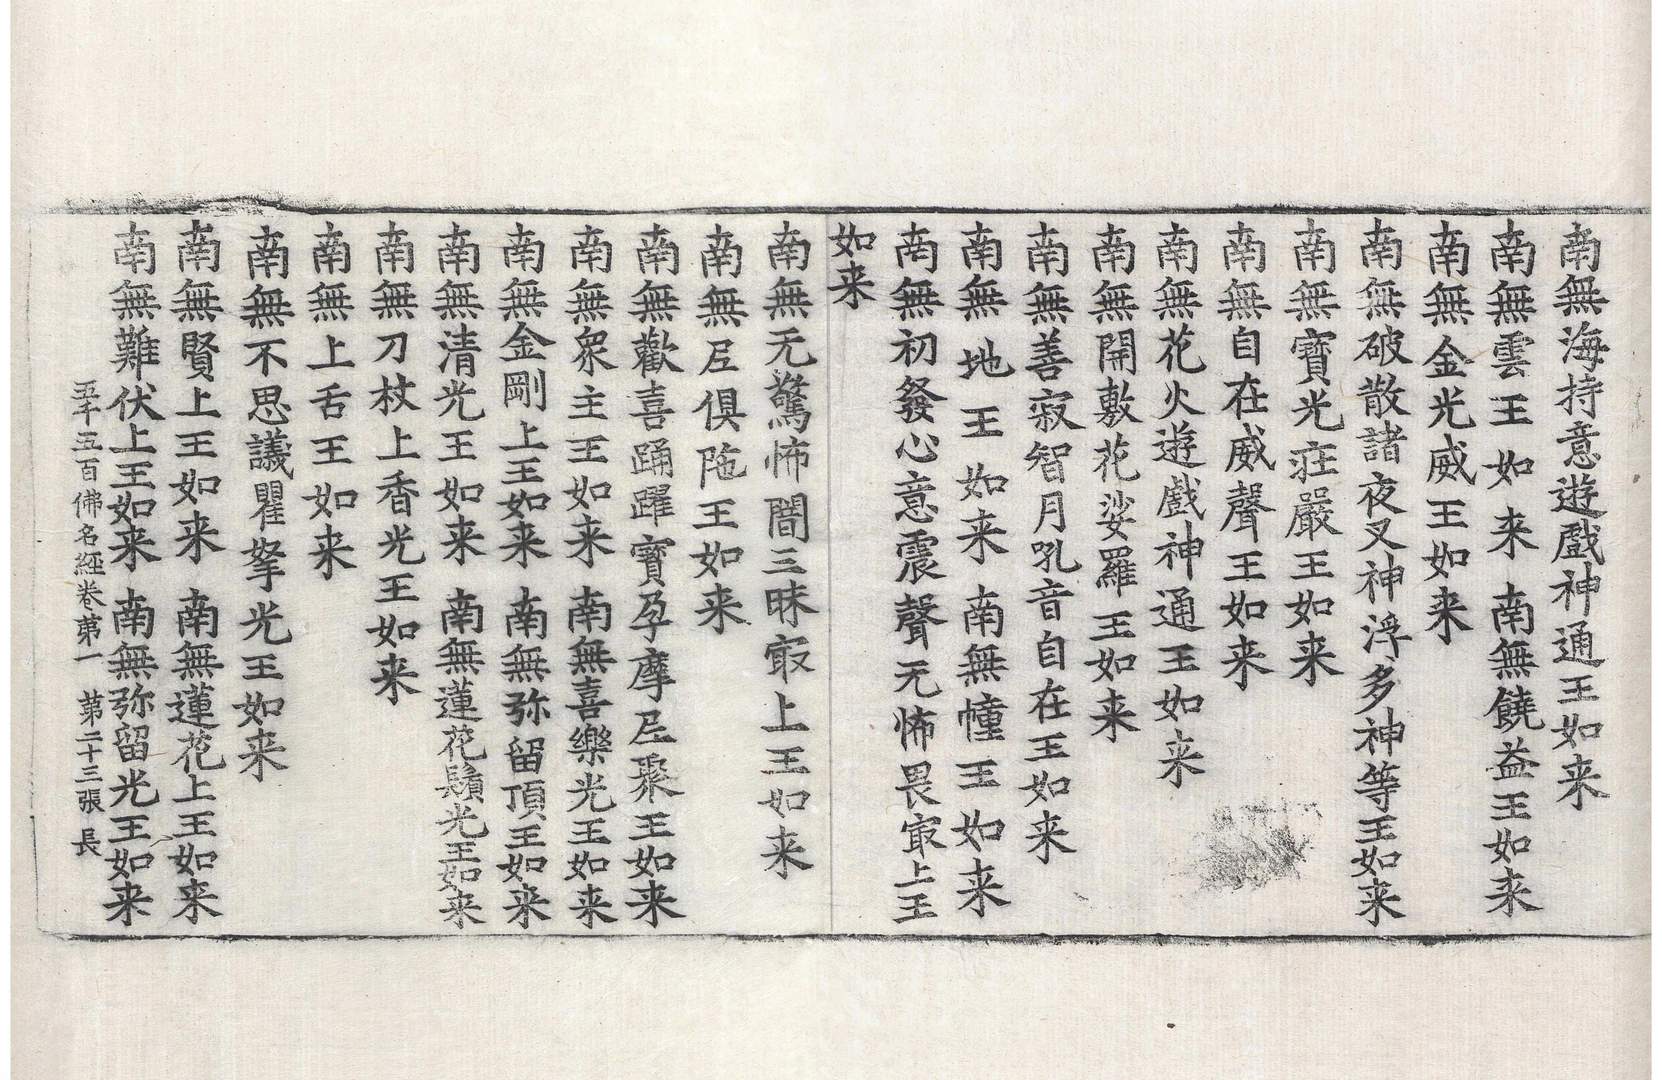 南無海持意遊戲神通王如来
南無雲王如来 南無饒益王如来
南無金光威王如来
南無破散諸夜叉神浮多神等王如来
南無寶光庄嚴王如来
南無自在威聲王如来
南無花火遊戲神通王如来
南無開敷花娑羅王如来
南無善寂智月吼音自在王如来
南無地王如来 南無幢王如来
南無初發心意震聲无怖畏㝡上王
如来
南無无驚怖闇三昧㝡上王如来
南無尼俱陁王如来
南無歡喜踊躍寳孕摩尼聚王如来
南無衆主王如来 南無喜樂光王如来
南無金剛上王如来 南無弥留頂王如来
南無清光王如来 南無蓮花鬚光王如来
南無刀杖上香光王如来
南無上舌王如来
南無不思議瞿拏光王如来
南無賢上王如来 南無蓮花上王如来
南無難伏上王如来 南無弥留光王如来
五千五百佛名経巻苐一 苐二十三張 長